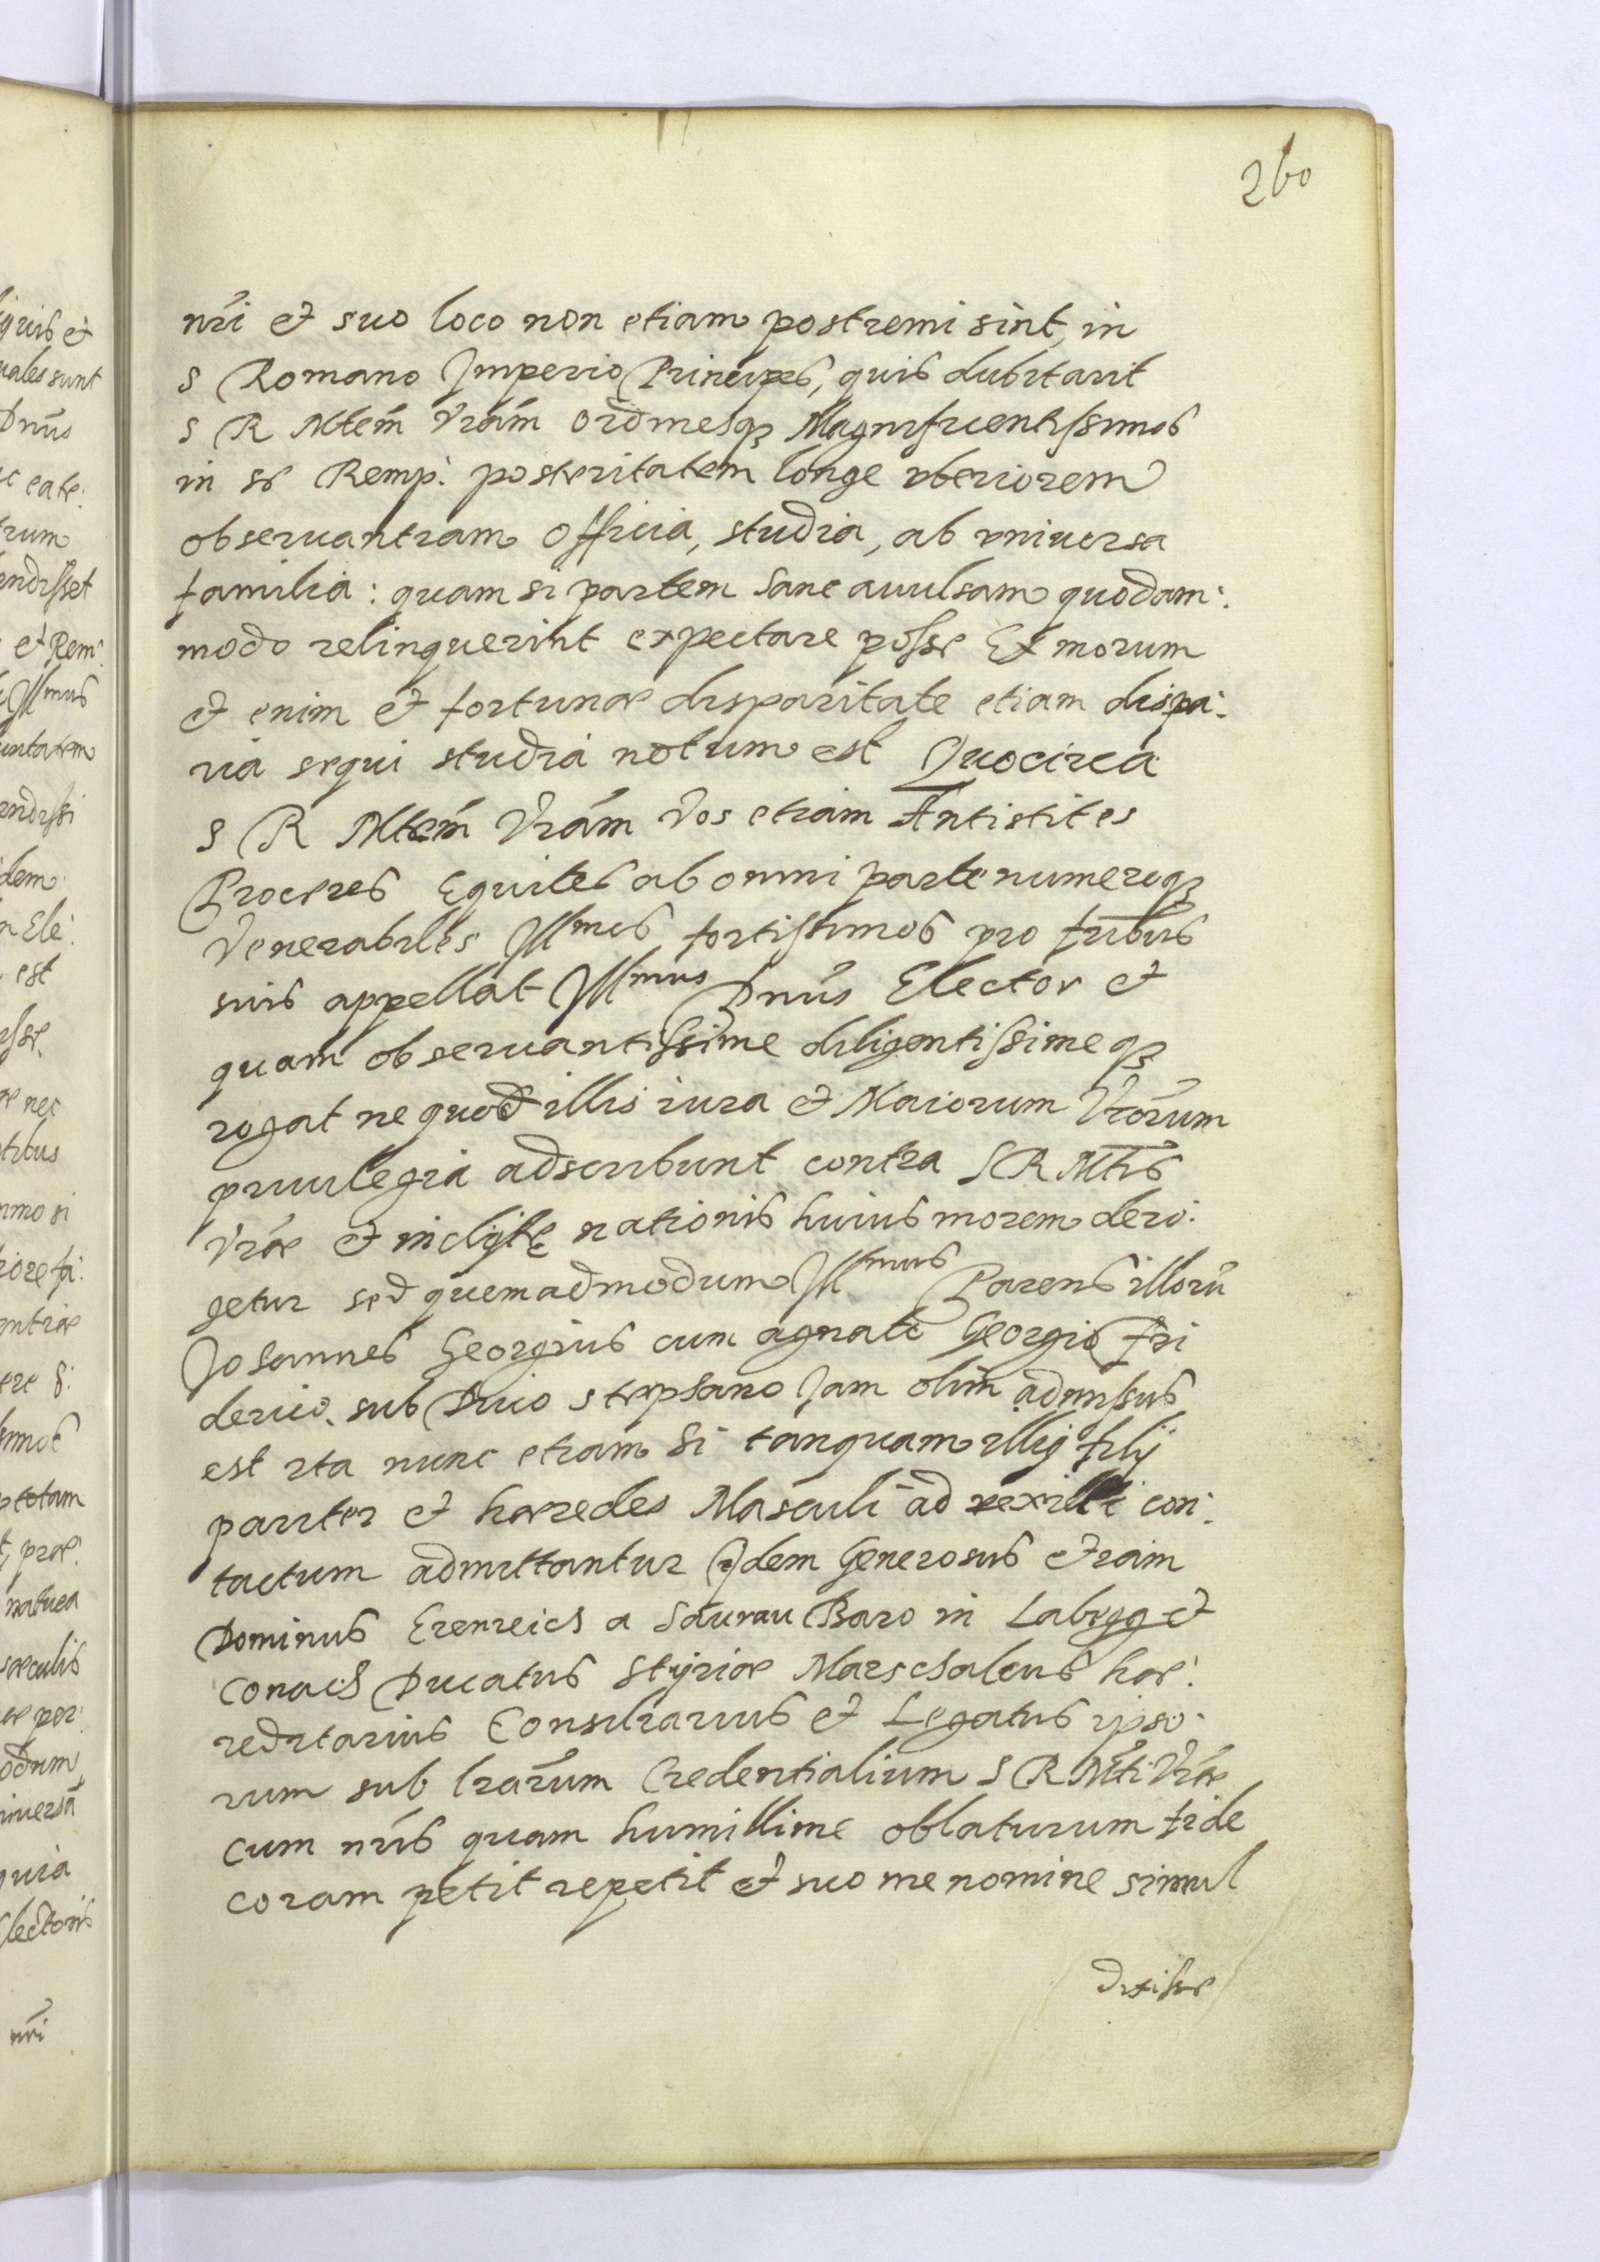 260
nr̃i et suo loco non etiam postremi sint, in
S Romano Imperio Principes, quis dubitarit
S R Mtem̃ Vrãm ordinesq₃ Magnificentissimos
in se Remp: posteritatem longe vberiorem
obseruantiam officia, studia, ab vniuersa
familia: quam si partem sane auulsam quodam:
modo relinquerint expectare posse Ex morum
et enim et fortunae disparitate etiam dispa:
ria sequi studia notum est Quocirca
S R Mtem̃ Vrãm Vos etiam Antistites
Proceres Equites ab omni parte numeroq₃
Venerabiles Illmos fortissimos pro fribus
suis appellat Illmus Dnus̃ Elector et
quam obseruantissime diligentissimeq₃
rogat ne quod illis iura et Maiorum Vrõrum
priuilegia adscribunt contra S R Mtis
Vrãe et inclytę nationis huius morem dero:
getur sed quemadmodum Illmus Parens illorũ
Johannes Georgius cum agnato Georgio Fri
derico. sub Diuo Stephano Jam olim admissus
est ita nunc etiam Si tanquam illiq filij
pariter et haeredes Masculi ad vexilli con:
tactum admittantur Idem Generosus etiam
Dominus Erenreich a Saurau Baro in Labegg et
Conach Ducatus Styriae Marschalcus hae:
reditarius Consiliarius et Legatus ipso:
rum sub lrãrum Credentialium S R Mti Vrãe
cum nr̃is quam humillime oblaturum fide
coram petit repetit et suo me nomine simul
dixisse